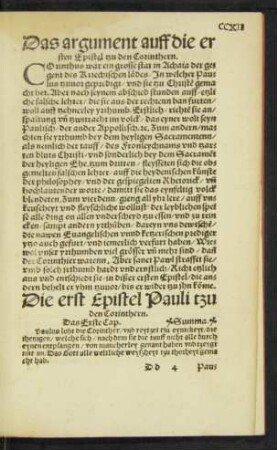 CCXII
Das argument auff die er
sten Epistel tzu den Corinthern.
COrinthus war ein grosse stat in Achaia der ge
gent des Kriechischen lādes. In welcher Pau
lus zuuor geprediget/ vnd sie zu Christē gema
cht het. Aber nach seynem abschid stunden auff/ etzli
che falsche lehrer/ die sie aus der rechten ban furten/
woll auff
spaltung vn̄ zwitracht im volck/ das eyner wolt seyn
Paulisch. Der ander Appollisch. ec. Zum andern/ mach
ten sie yrthumb bey dem heyligen Sacramenten/
als nemlich der tauff/ des Fronleychnams vnd zar
ten bluts Christi/ vnd sonderlich bey dem Sacramēt
der heyligen Ehe. zum dritten/ flyssen sich die ob
gemelten falschen lehrer/ auff die heydenischen künste
der philosophey/ vnd der gespiegelten Rhetorick/ vn̄
hochlautender worte/ damit sie das eynfeltig volck
blendeten. Zum vierden/ gieng all yhr lere/ auff vns
keuscheyt vnd fleyschliche wollust/ der leyblichen spey
se alle ding on allen vnderscheyd zu essen/ vnd zu trin
cken/ sampt andern yrthumben/
die newen Euangelischen vnnd ketzerischen prediger
ytzo auch gefurt/ vnd iemerlich verfurt haben. Wie
wol vnser yrthumben vil grösser vn̄ mehr sind/ dan̄
der Corinther waren/ Aber sanct Pawl strafft sie/
vmb solch yrthumb hardt vnd ernstlich/ Richt etzlich
aus vnd entscheid sie in diser ersten Epistel/ die an
dern behelt er yhm zuuor/ bis er wider zu yhn kōme.
Die erst Epistel Pauli tzu
den Corinthern.
Das Erste Cap. Summa.
Paulus lobt die Corinther/ vnd reytzet zu eynickeyt/ die
ihenigen/ welche sich/ nachdem sie die tauff nicht alle durch
eynen entpfangen/ von mancherley genant haben vnd zeygt
an. Das Gott alle weltliche weyßheyt zu thorheyt gema
cht hab.
D d 4 Pau